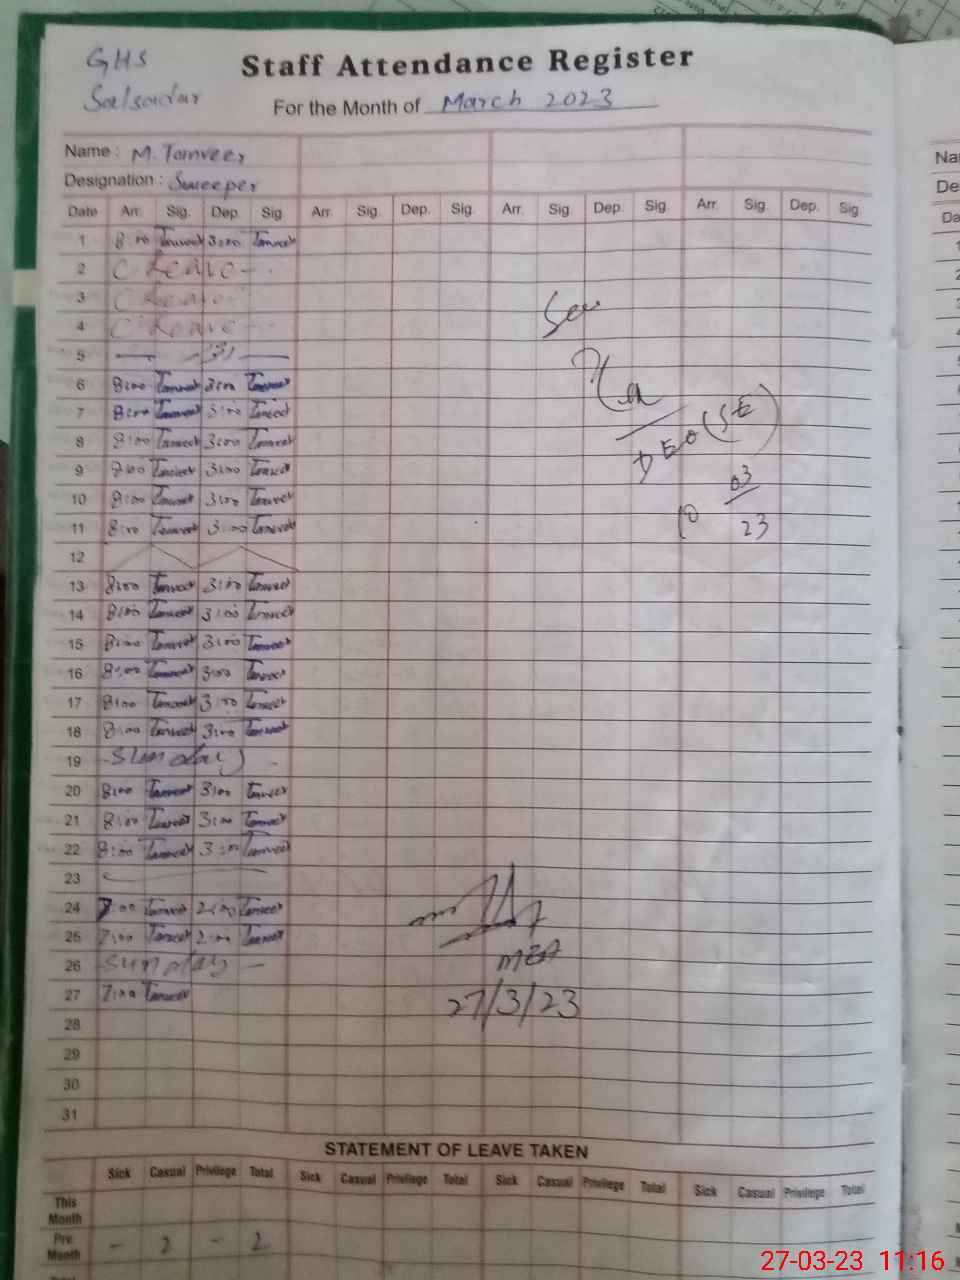 GHS
Salsadar
Staff Attendance Register
For the Month of March 2023
Name : M. Tanveer
Designation : Sweeper
Date Arr. Sig. Dep. Sig. Arr. Sig. Dep. Sig. Arr. Sig. Dep. Sig. Arr. Sig. Dep. Sig.
1 8:00 Tanveer 3:00 Tanveer
2 C Leave
3 C Leave
4 C Leave
5
6 8:00 Tanveer 3:00 Tanveer
7 8:00 Tanveer 3:00 Tanveer
8 8:00 Tanveer 3:00 Tanveer
9 8:00 Tanveer 3:00 Tanveer
10 8:00 Tanveer 3:00 Tanveer
11 8:00 Tanveer 3:00 Tanveer
12
13 8:00 Tanveer 3:00 Tanveer
14 8:00 Tanveer 3:00 Tanveer
15 8:00 Tanveer 3:00 Tanveer
16 8:00 Tanveer 3:00 Tanveer
17 8:00 Tanveer 3:00 Tanveer
18 8:00 Tanveer 3:00 Tanveer
19 Sunday
20 8:00 Tanveer 3:00 Tanveer
21 8:00 Tanveer 3:00 Tanveer
22 8:00 Tanveer 3:00 Tanveer
23
24 7:00 Tanveer 2:00 Tanveer
25 7:00 Tanveer 2:00 Tanveer
26 Sunday
27 7:00 Tanveer
28
29
30
31
DEO (SE)
10 03
23
MEA
27/3/23
STATEMENT OF LEAVE TAKEN
Sick Casual Privilege Total Sick Casual Privilege Total Sick Casual Privilege Total Sick Casual Privilege Total
This Month
Pre. Month - 2 - 2
27-03-23 11:16